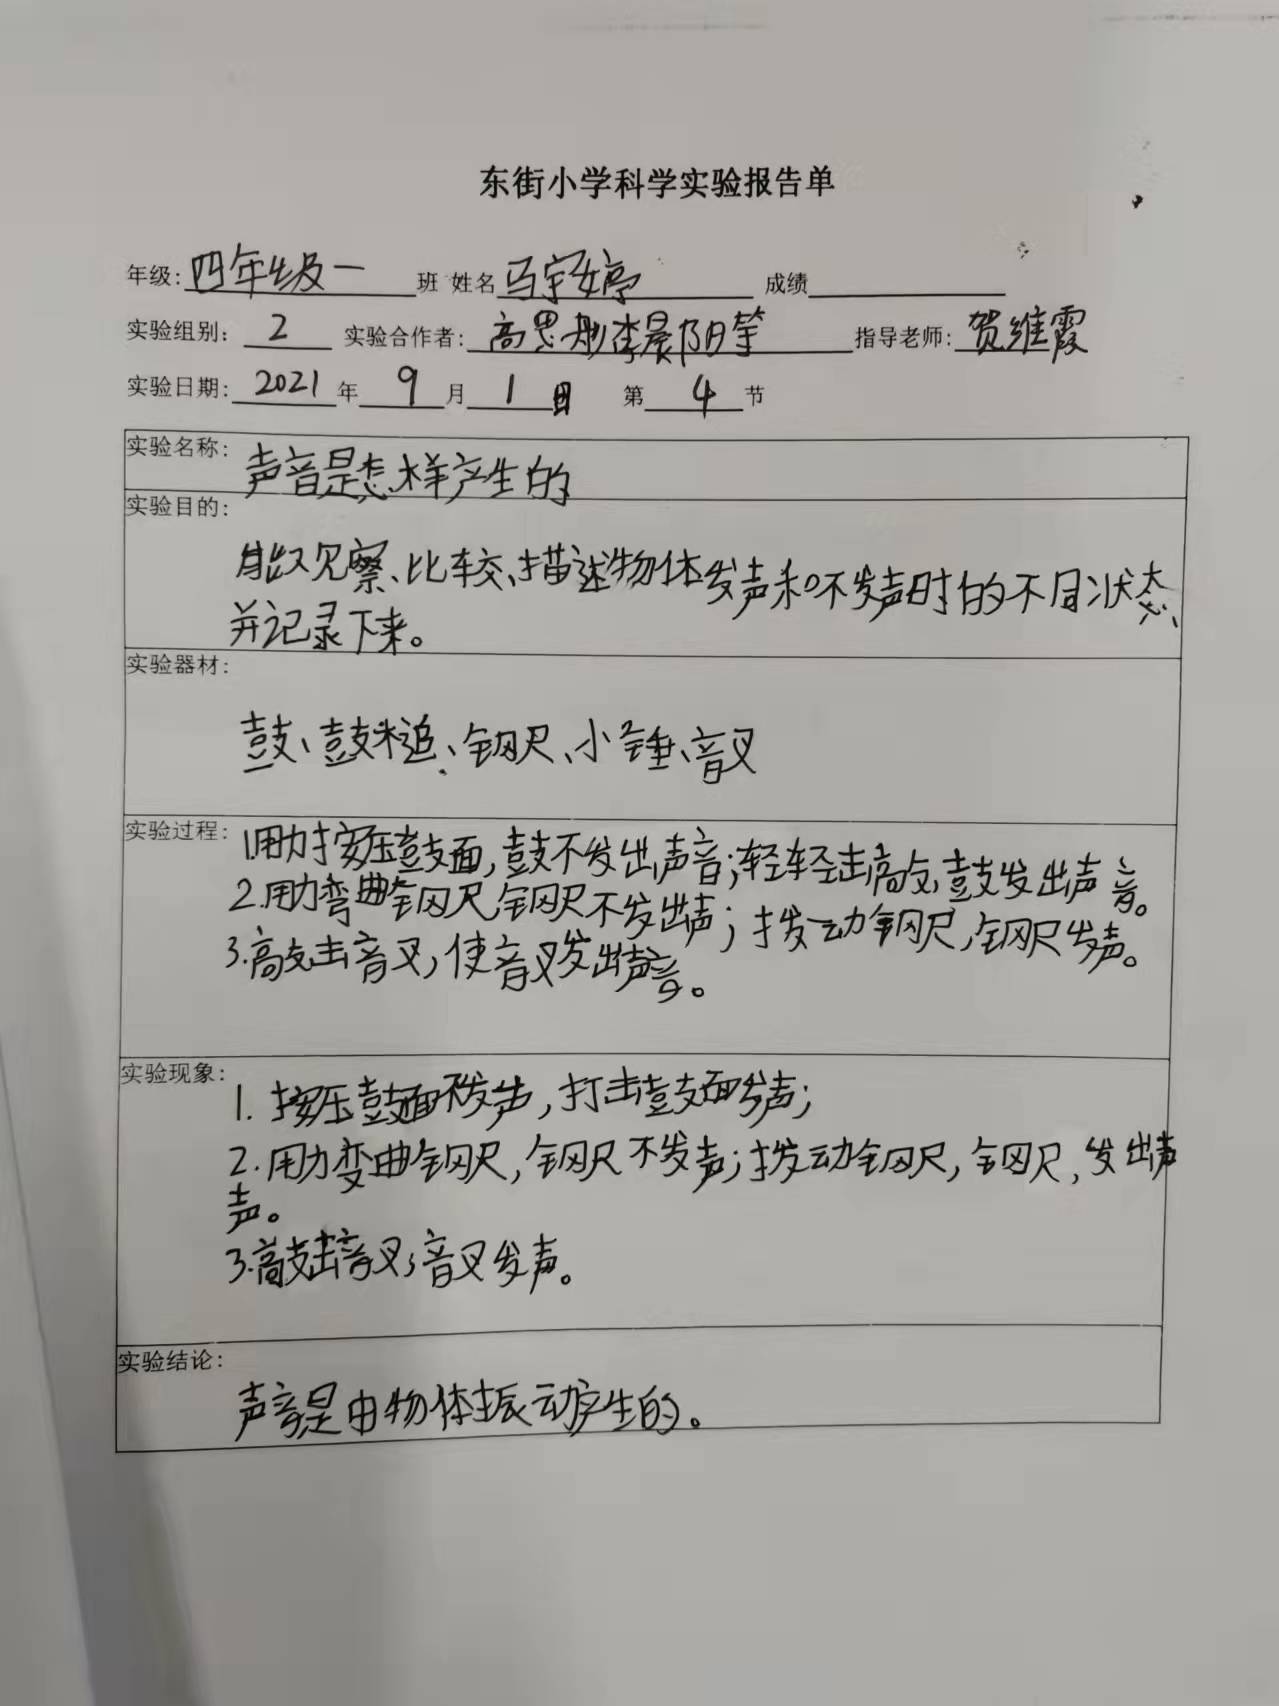 东街小学科学实验报告单
年级:四年级一 班 姓名 马宇婷 成绩
实验组别: 2 实验合作者: 高思彤李晨阳等 指导老师: 贺维霞
实验日期: 2021 年 9 月 1 日 第 4 节
实验名称: 声音是怎样产生的
实验目的:
能观察、比较、描述物体发声和不发声时的不同状态、
并记录下来。
实验器材:
鼓、鼓槌、钢尺、小锤、音叉
实验过程: 1.用力按压鼓面,鼓不发出声音;轻轻击敲,鼓发出声音。
2.用力弯曲钢尺,钢尺不发出声;拨动钢尺,钢尺发声。
3.敲击音叉,使音叉发出声音。
实验现象:
1. 按压鼓面不发声,打击鼓面发声;
2.用力弯曲钢尺,钢尺不发声;拨动钢尺,钢尺,发出声
声。
3.敲击音叉,音叉发声。
实验结论:
声音是由物体振动产生的。